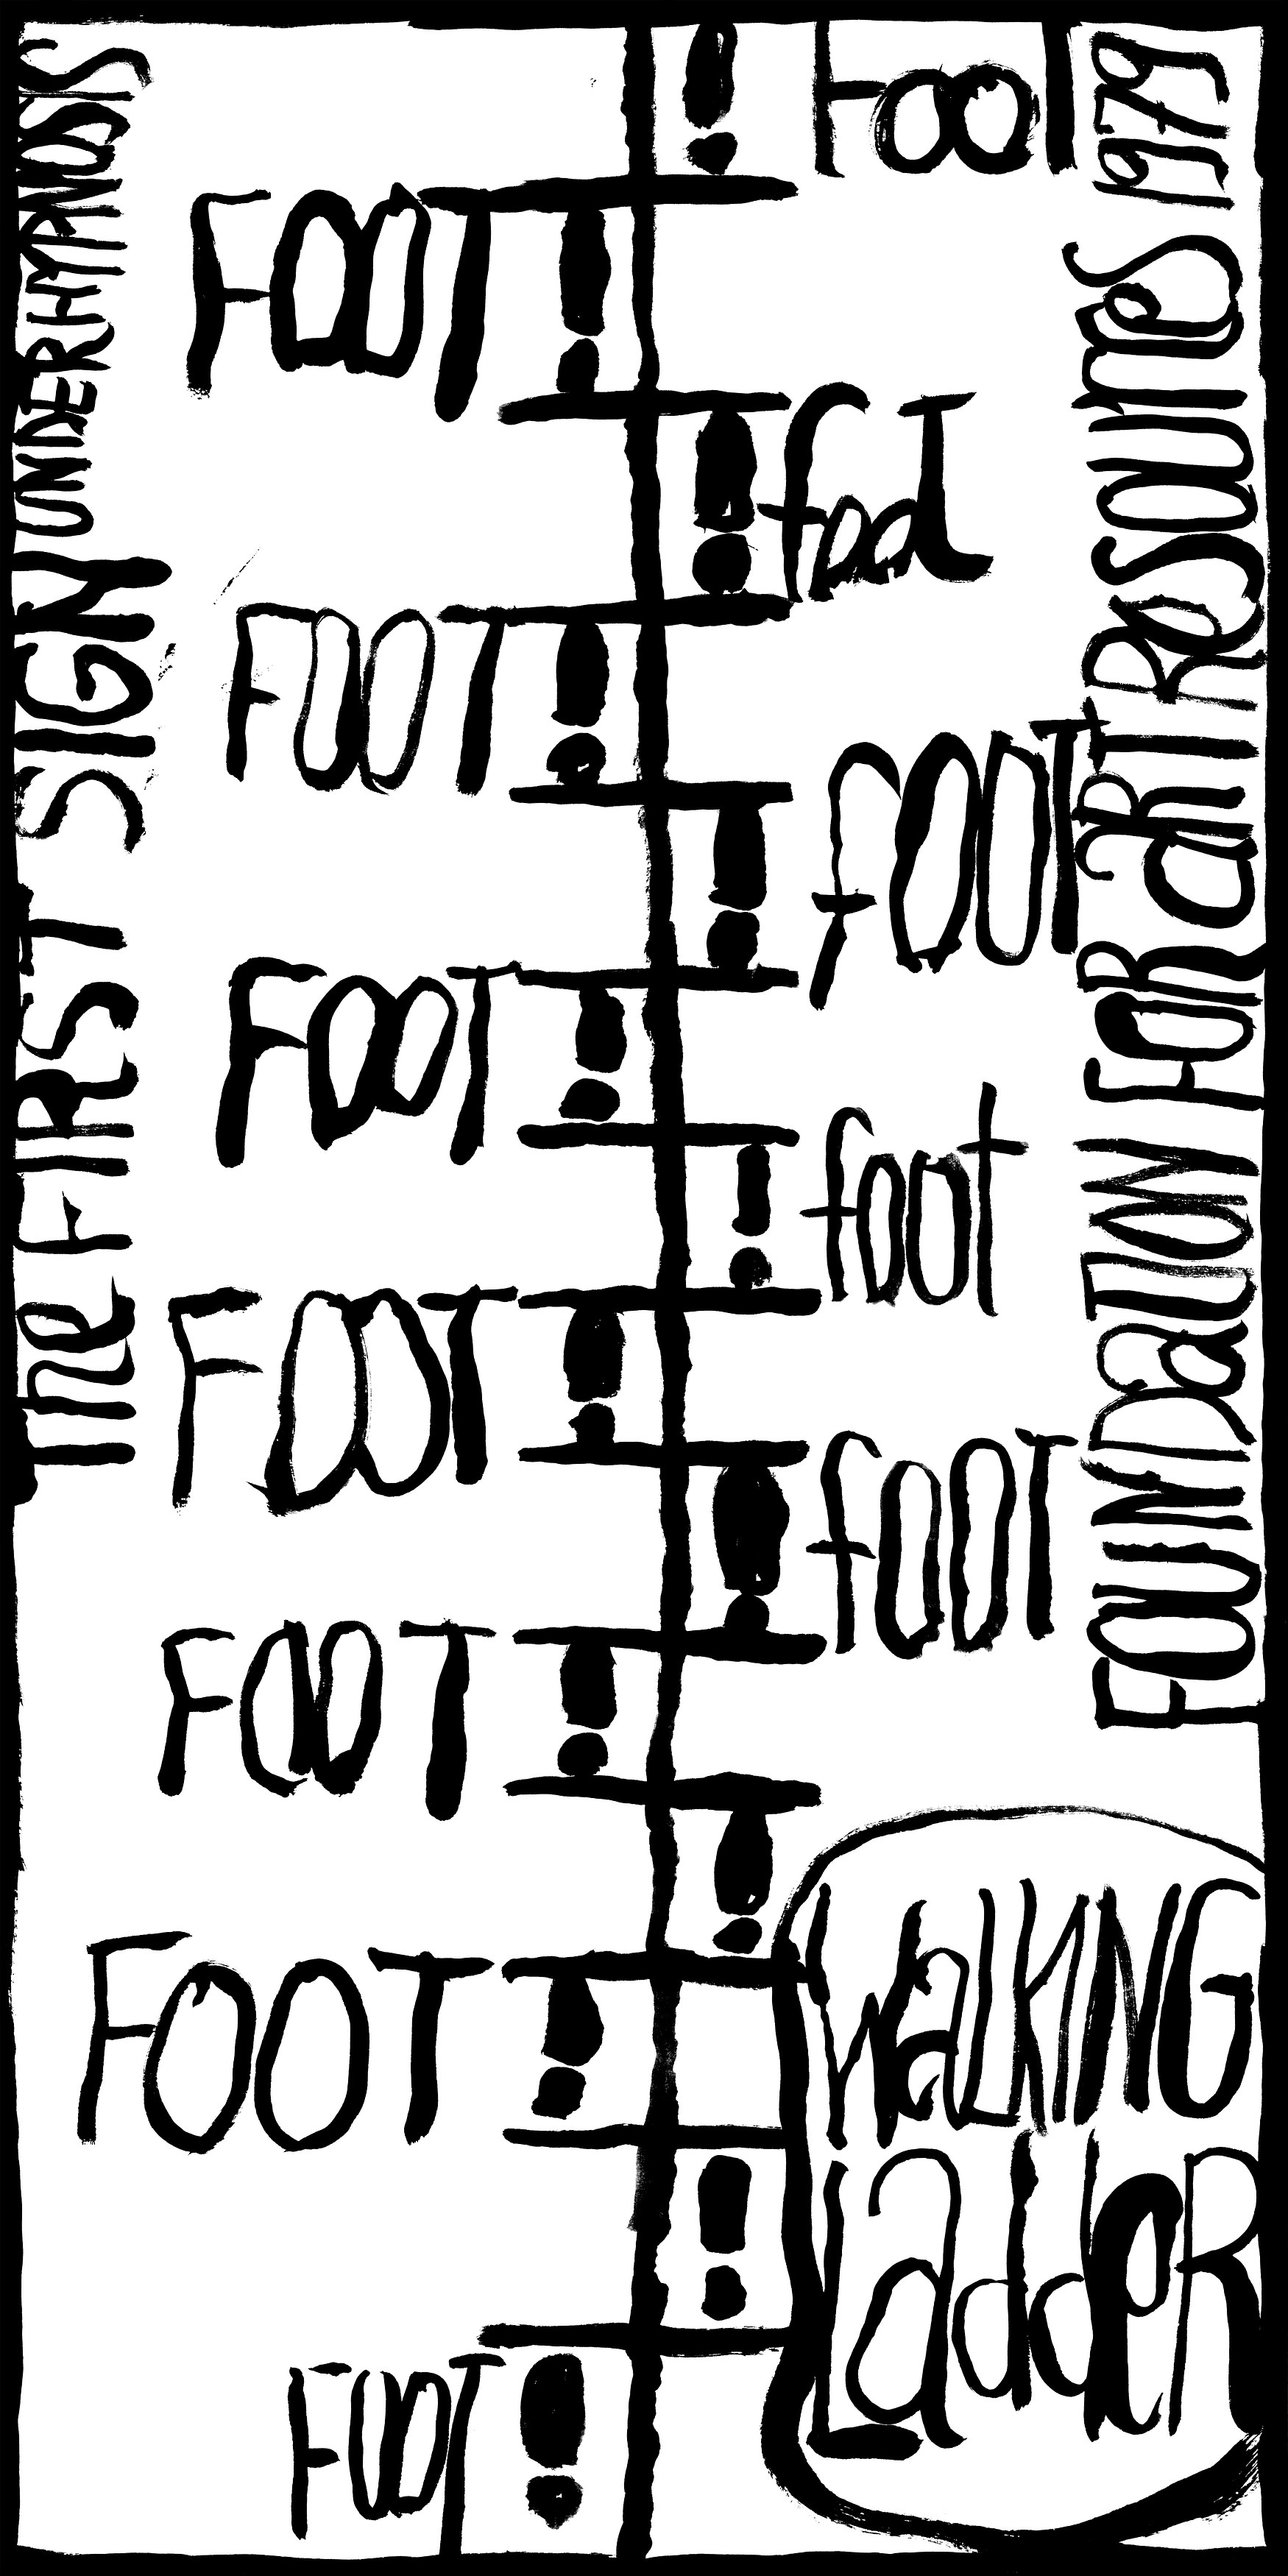 THe FIRST SIGN UNDER HYPNOSIS
! FOOT
FOOT !
! foot
FOOT !
! fOOT
FOOT !
! foot
FOOT !
! fOOT
FOOT !
!
FOOT !
!
FOOT !
WaLKING
LaddeR
FOUNDaTION FOR aRT ReSOURCeS 1979